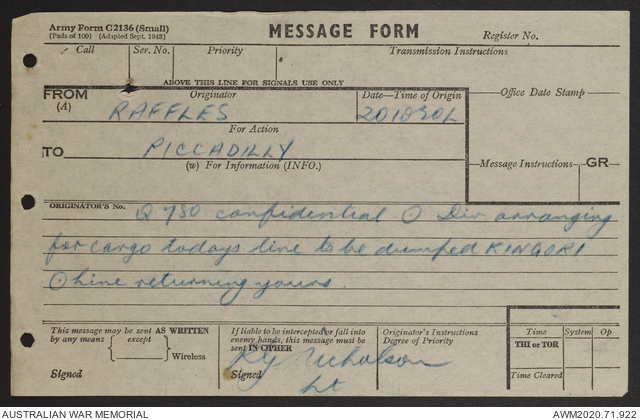 Army Form C2136 (Small)
(Pads of 100) (Adapted Sept. 1943)
MESSAGE FORM
Register No.
Call Ser. No. Priority Transmission Instructions
ABOVE THIS LINE FOR SIGNALS USE ONLY
FROM (A) Originator Date—Time of Origin Office Date Stamp
RAFFLES 201030L
For Action
TO PICCADILLY
(w) For Information (INFO.) Message Instructions GR
ORIGINATOR'S No. Q 780 confidential O Div arranging
for cargo todays line to be dumped KINGORI
O line returning yours.
This message may be sent AS WRITTEN by any means except Wireless
Signed
If liable to be intercepted or fall into enemy hands, this message must be sent IN CIPHER
Signed
Nicholson
Lt
Originator's Instructions
Degree of Priority
Time System Op
THI or TOR
Time Cleared
AUSTRALIAN WAR MEMORIAL AWM2020.71.922